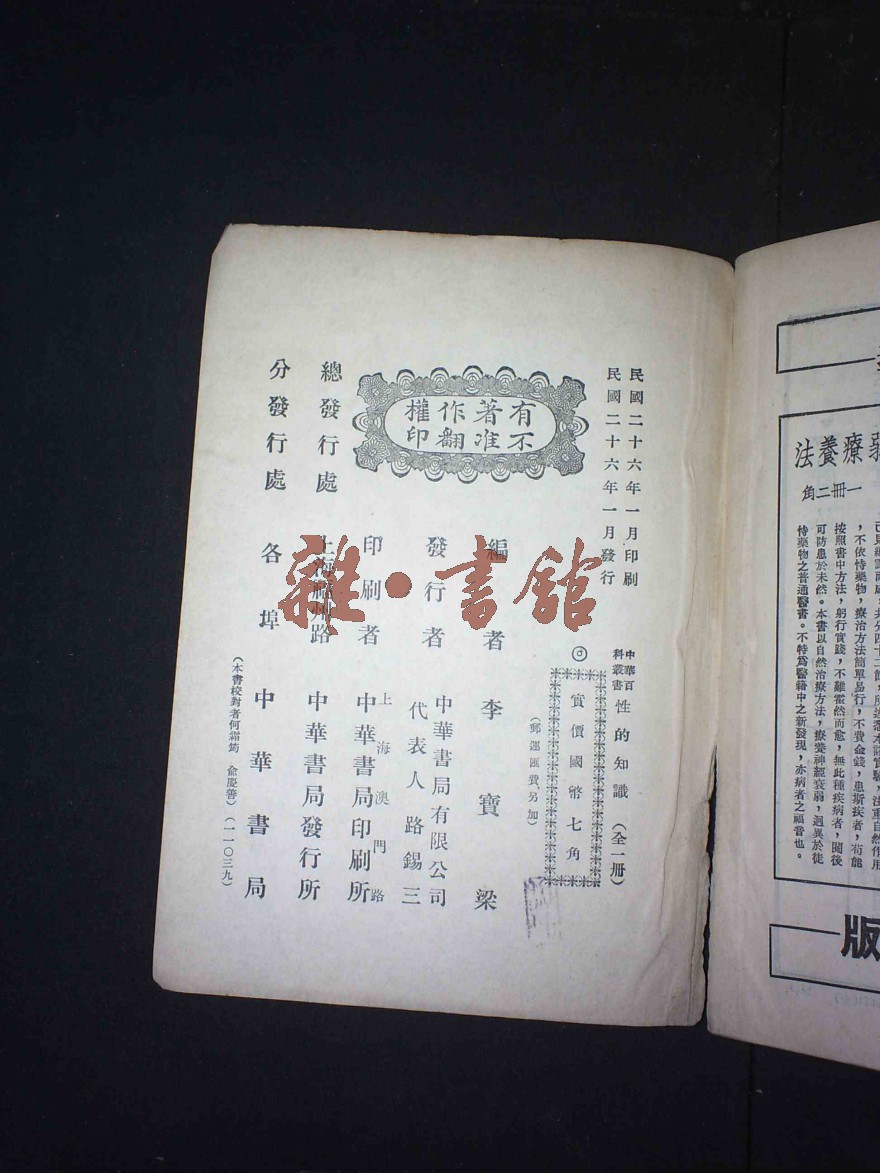 民國二十六年一月印刷
民國二十六年一月發行
中華百科叢書 性的知識 (全一册)
◎實價國幣七角
(郵運匯費另加)
有著作權
不准翻印
編者 李寶梁
發行者 中華書局有限公司
代表人路錫三
印刷者 上海澳門路
中華書局印刷所
總發行處 上海福州路 中華書局發行所
分發行處 各埠中華書局
(本書校對者何霜筠 俞慶善)(一一〇三九)
雜·書館
療養法
一冊二角
,不依恃藥物,療治方法簡單易行,不費金錢,患斯疾者,苟能
按照書中方法,躬行實踐,不難霍然而愈,無此種疾病者,閱後
可防患於未然。本書以自然治療方法,療養神經衰弱,迥異於徒
恃藥物之普通醫書。不特爲醫籍中之新發現,亦病者之福音也。
版